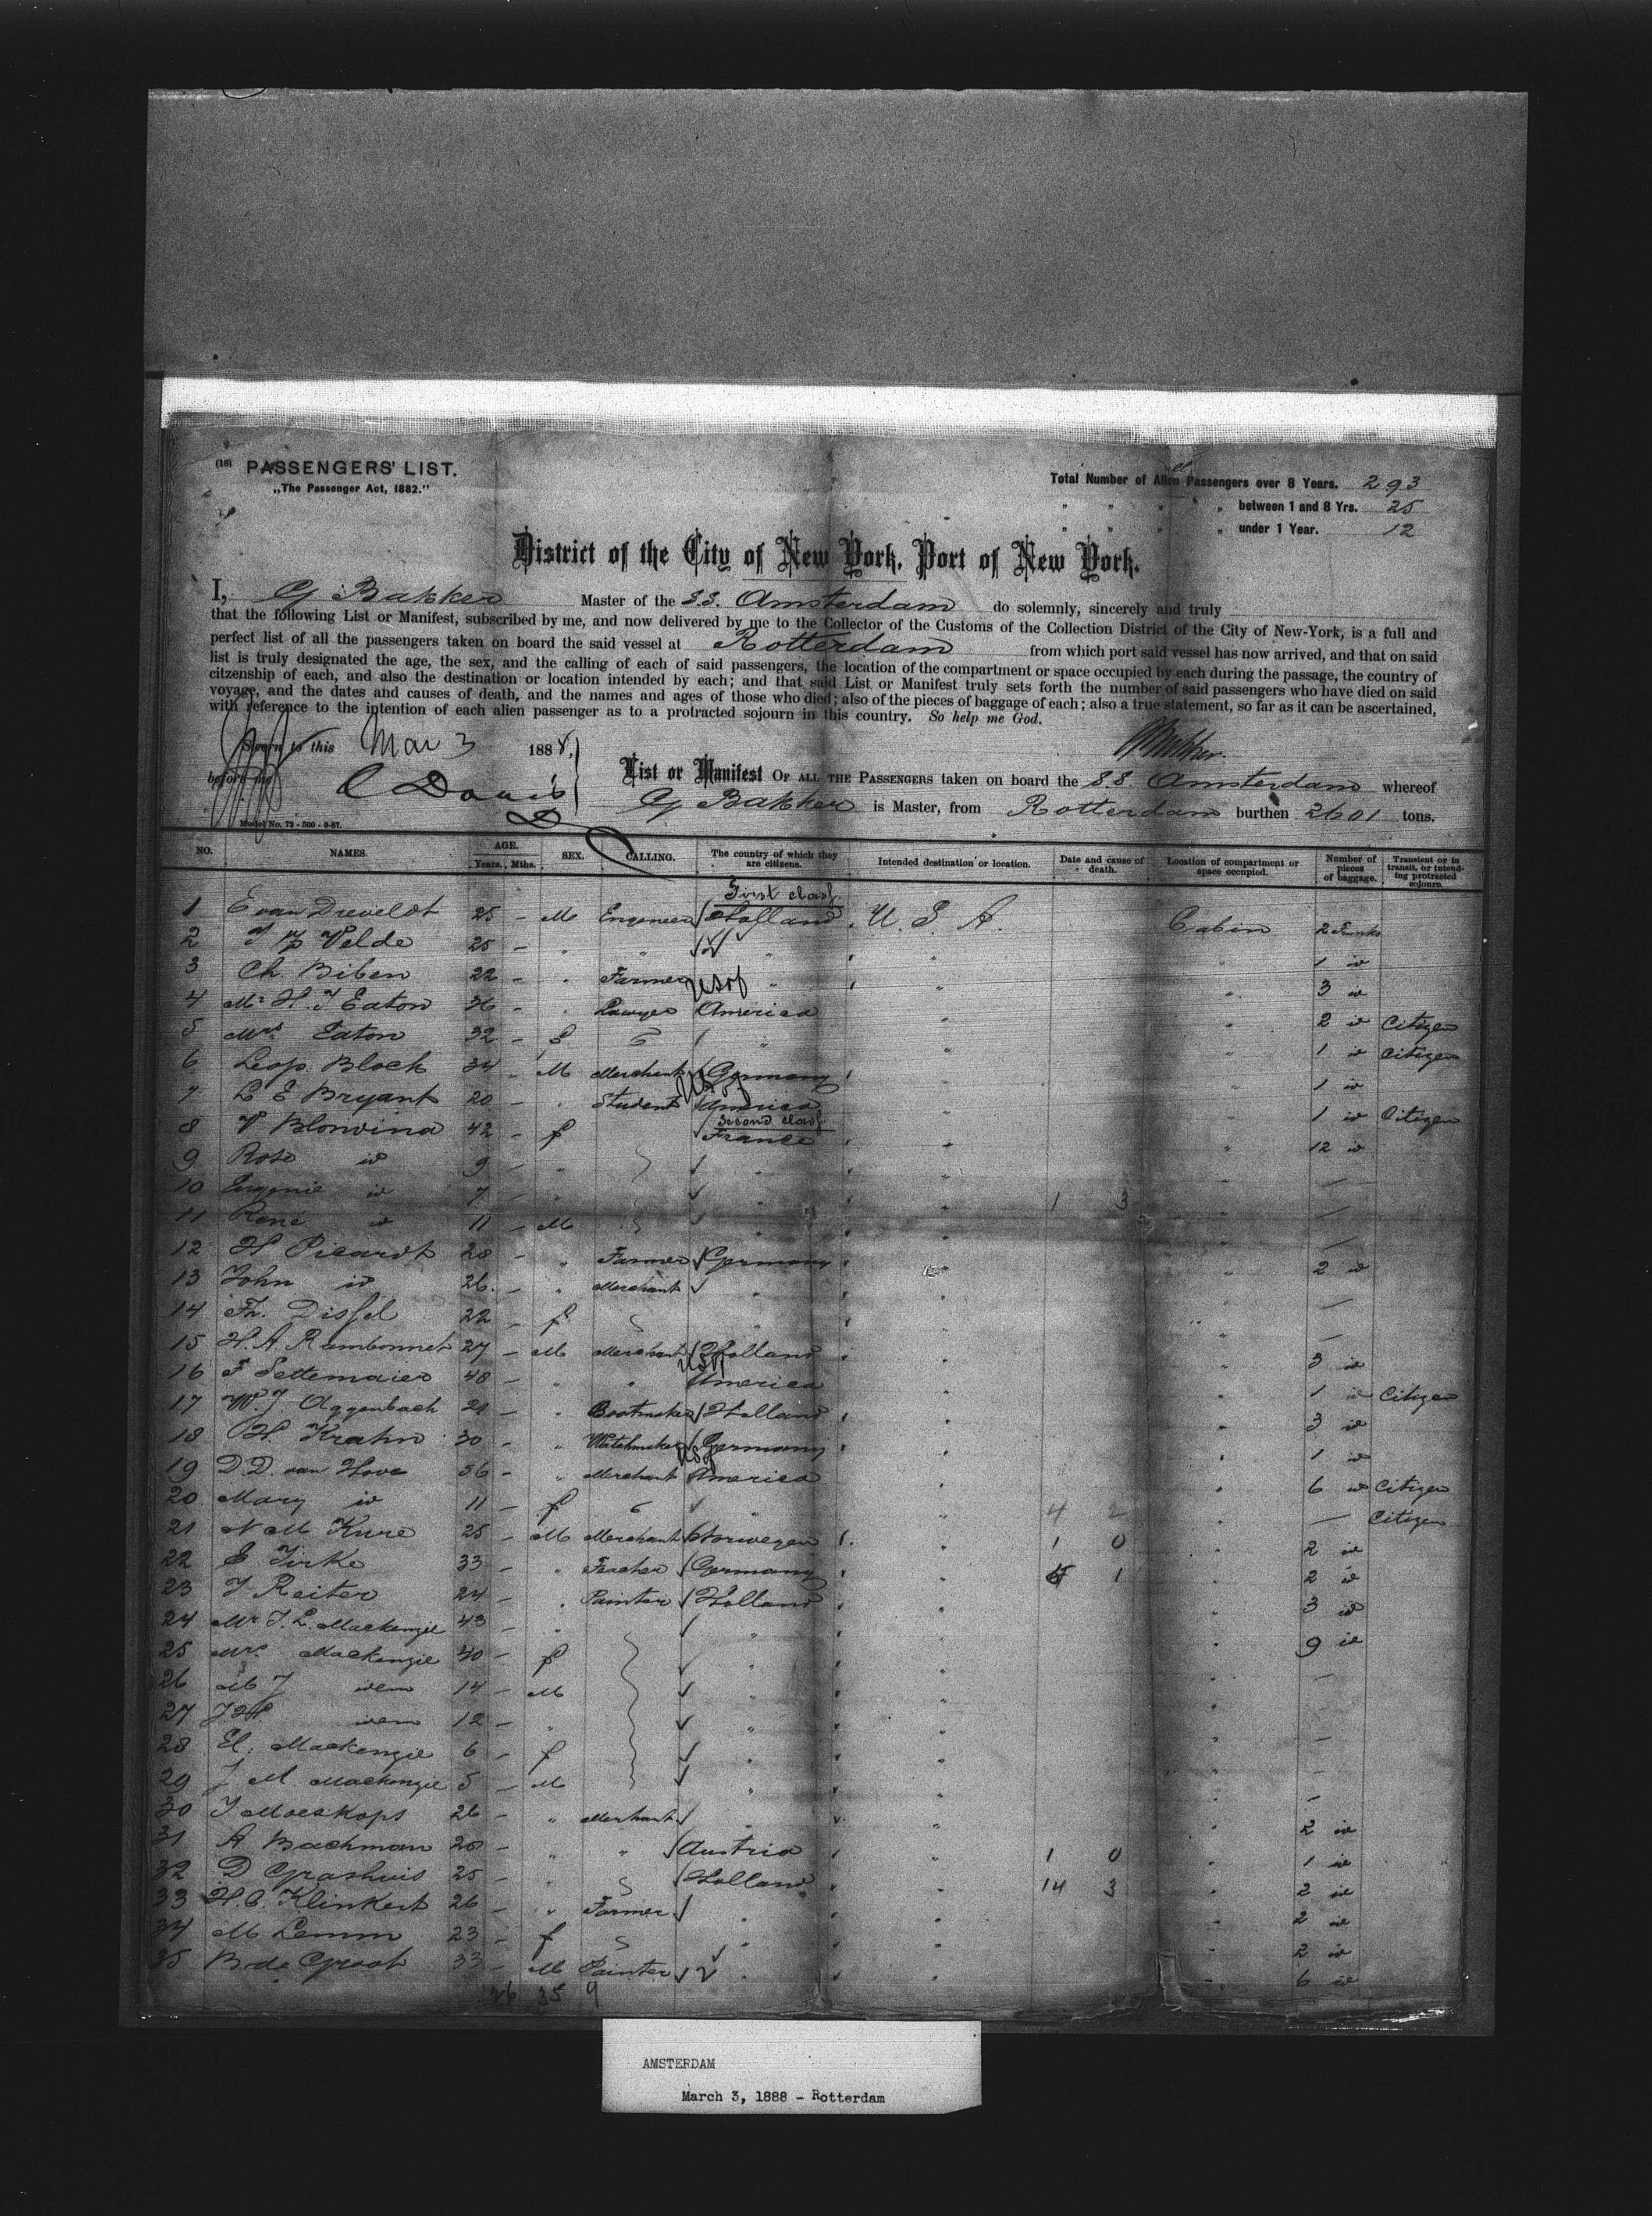 (18) PASSENGERS' LIST.
„The Passenger Act, 1882."
Total Number of Alien Passengers over 8 Years. 293
" " " " between 1 and 8 Yrs. 25
" " " " under 1 Year. 12
District of the City of New York, Port of New York.
I, G Bakker Master of the S.S. Amsterdam do solemnly, sincerely and truly
that the following List or Manifest, subscribed by me, and now delivered by me to the Collector of the Customs of the Collection District of the City of New-York, is a full and
perfect list of all the passengers taken on board the said vessel at Rotterdam from which port said vessel has now arrived, and that on said
list is truly designated the age, the sex, and the calling of each of said passengers, the location of the compartment or space occupied by each during the passage, the country of
citzenship of each, and also the destination or location intended by each; and that said List or Manifest truly sets forth the number of said passengers who have died on said
voyage, and the dates and causes of death, and the names and ages of those who died; also of the pieces of baggage of each; also a true statement, so far as it can be ascertained,
with reference to the intention of each alien passenger as to a protracted sojourn in this country. So help me God.
Sworn to this Mar 3 1888,
before me C Davis
List or Manifest OF ALL THE PASSENGERS taken on board the S.S. Amsterdam whereof
G Bakker is Master, from Rotterdam burthen 2601 tons.
Model No. 72 - 500 - 9-87.
NO. NAMES AGE. Years. Mths. SEX. CALLING. The country of which they are citizens. Intended destination or location. Date and cause of death. Location of compartment or space occupied. Number of pieces of baggage. Transient or in transit, or intending protracted sojourn.
First class
1 E van Dreveldt 25 - M Engeneer Holland U. S. A. Cabin 2 Trunks
2 Velde 25 - " " " " " 1 id
3 Ch. Biben 22 - " Farmer " " " 3 id
4 Mr H. J Eaton 36 - " Lawyer USof America " " 2 id Citizen
5 Mrs Eaton 32 - f " " " 1 id Citizen
6 Leop. Block 34 - M Merchant Germany " " 1 id
7 L E Bryant 20 - " Student USof America " " 1 id Citizen
Second class
8 V Blondina 42 - f France " " 12 id
9 Rose id 9 - " " " " —
10 Eugenie id 7 - " " " 1 3 " —
11 René id 11 - M " " " —
12 H Picardt 28 - " Farmer Germany " " 2 id
13 John id 26 - " Merchant " " " —
14 Th. Dissel 22 - f " " " —
15 H. A. Rambonnet 27 - M Merchant Holland " " 3 id
16 F Settemaier 48 - " " USof America " " 1 id Citizen
17 W. J. Aggenbach 21 - " Bootmaker Holland " " 3 id
18 H. Krahn 30 - " Watchmaker Germany " " 1 id
19 D. D. van Hove 56 - " Merchant USof America " " 6 id Citizen
20 Mary id 11 - f " " 4 2 " — Citizen
21 N M Kure 25 - M Merchant Norwegen " 1 0 " 2 id
22 E Tirke 33 - " Germany " 1 " 2 id
23 J Reiter 24 - " Painter Holland " " 3 id
24 Mr J. L. Mackenzie 43 - " " " " 9 id
25 Mrs Mackenzie 40 - f " " " —
26 M J idem 14 - M " " " —
27 idem 12 - " " " " —
28 El. Mackenzie 6 - f " " " —
29 J M Mackenzie 5 - M " " " —
30 J Moeskops 26 - " Merchant " " " 2 id
31 A Bachman 28 - " " Austria " 1 0 " 1 id
32 D Grashuis 25 - " Holland " 14 3 " 2 id
33 H. C. Klinkert 26 - " Farmer " " " 2 id
34 M Lemm 23 - f " " " 2 id
35 B de Groot 33 - M Painter " " " 6 id
26 35 9
AMSTERDAM
March 3, 1888 - Rotterdam